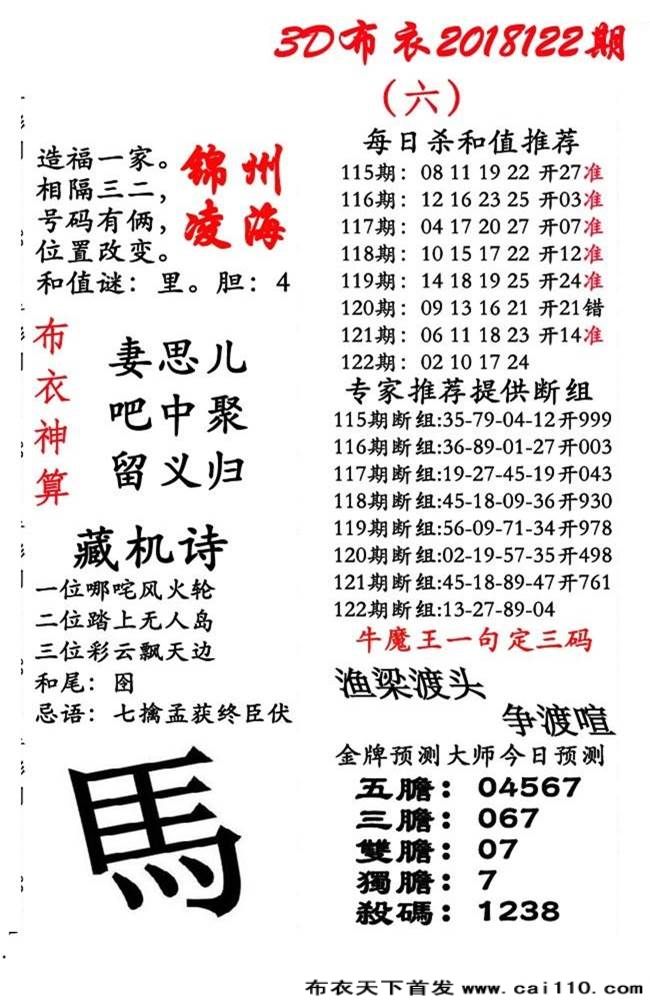 3D布衣2018122期
（六）
造福一家。
相隔三二，
号码有俩，
位置改变。
锦州
凌海
和值谜：里。胆：4
布衣神算
妻思儿
吧中聚
留义归
藏机诗
一位哪咤风火轮
二位踏上无人岛
三位彩云飘天边
和尾：图
忌语：七擒孟获终臣伏
馬
每日杀和值推荐
115期：08 11 19 22 开27准
116期：12 16 23 25 开03准
117期：04 17 20 27 开07准
118期：10 15 17 22 开12准
119期：14 18 19 25 开24准
120期：09 13 16 21 开21错
121期：06 11 18 23 开14准
122期：02 10 17 24
专家推荐提供断组
115期断组:35-79-04-12开999
116期断组:36-89-01-27开003
117期断组:19-27-45-19开043
118期断组:45-18-09-36开930
119期断组:56-09-71-34开978
120期断组:02-19-57-35开498
121期断组:45-18-89-47开761
122期断组:13-27-89-04
牛魔王一句定三码
渔梁渡头
争渡喧
金牌预测大师今日预测
五膽：04567
三膽：067
雙膽：07
獨膽：7
殺碼：1238
布衣天下首发 www.cai110.com